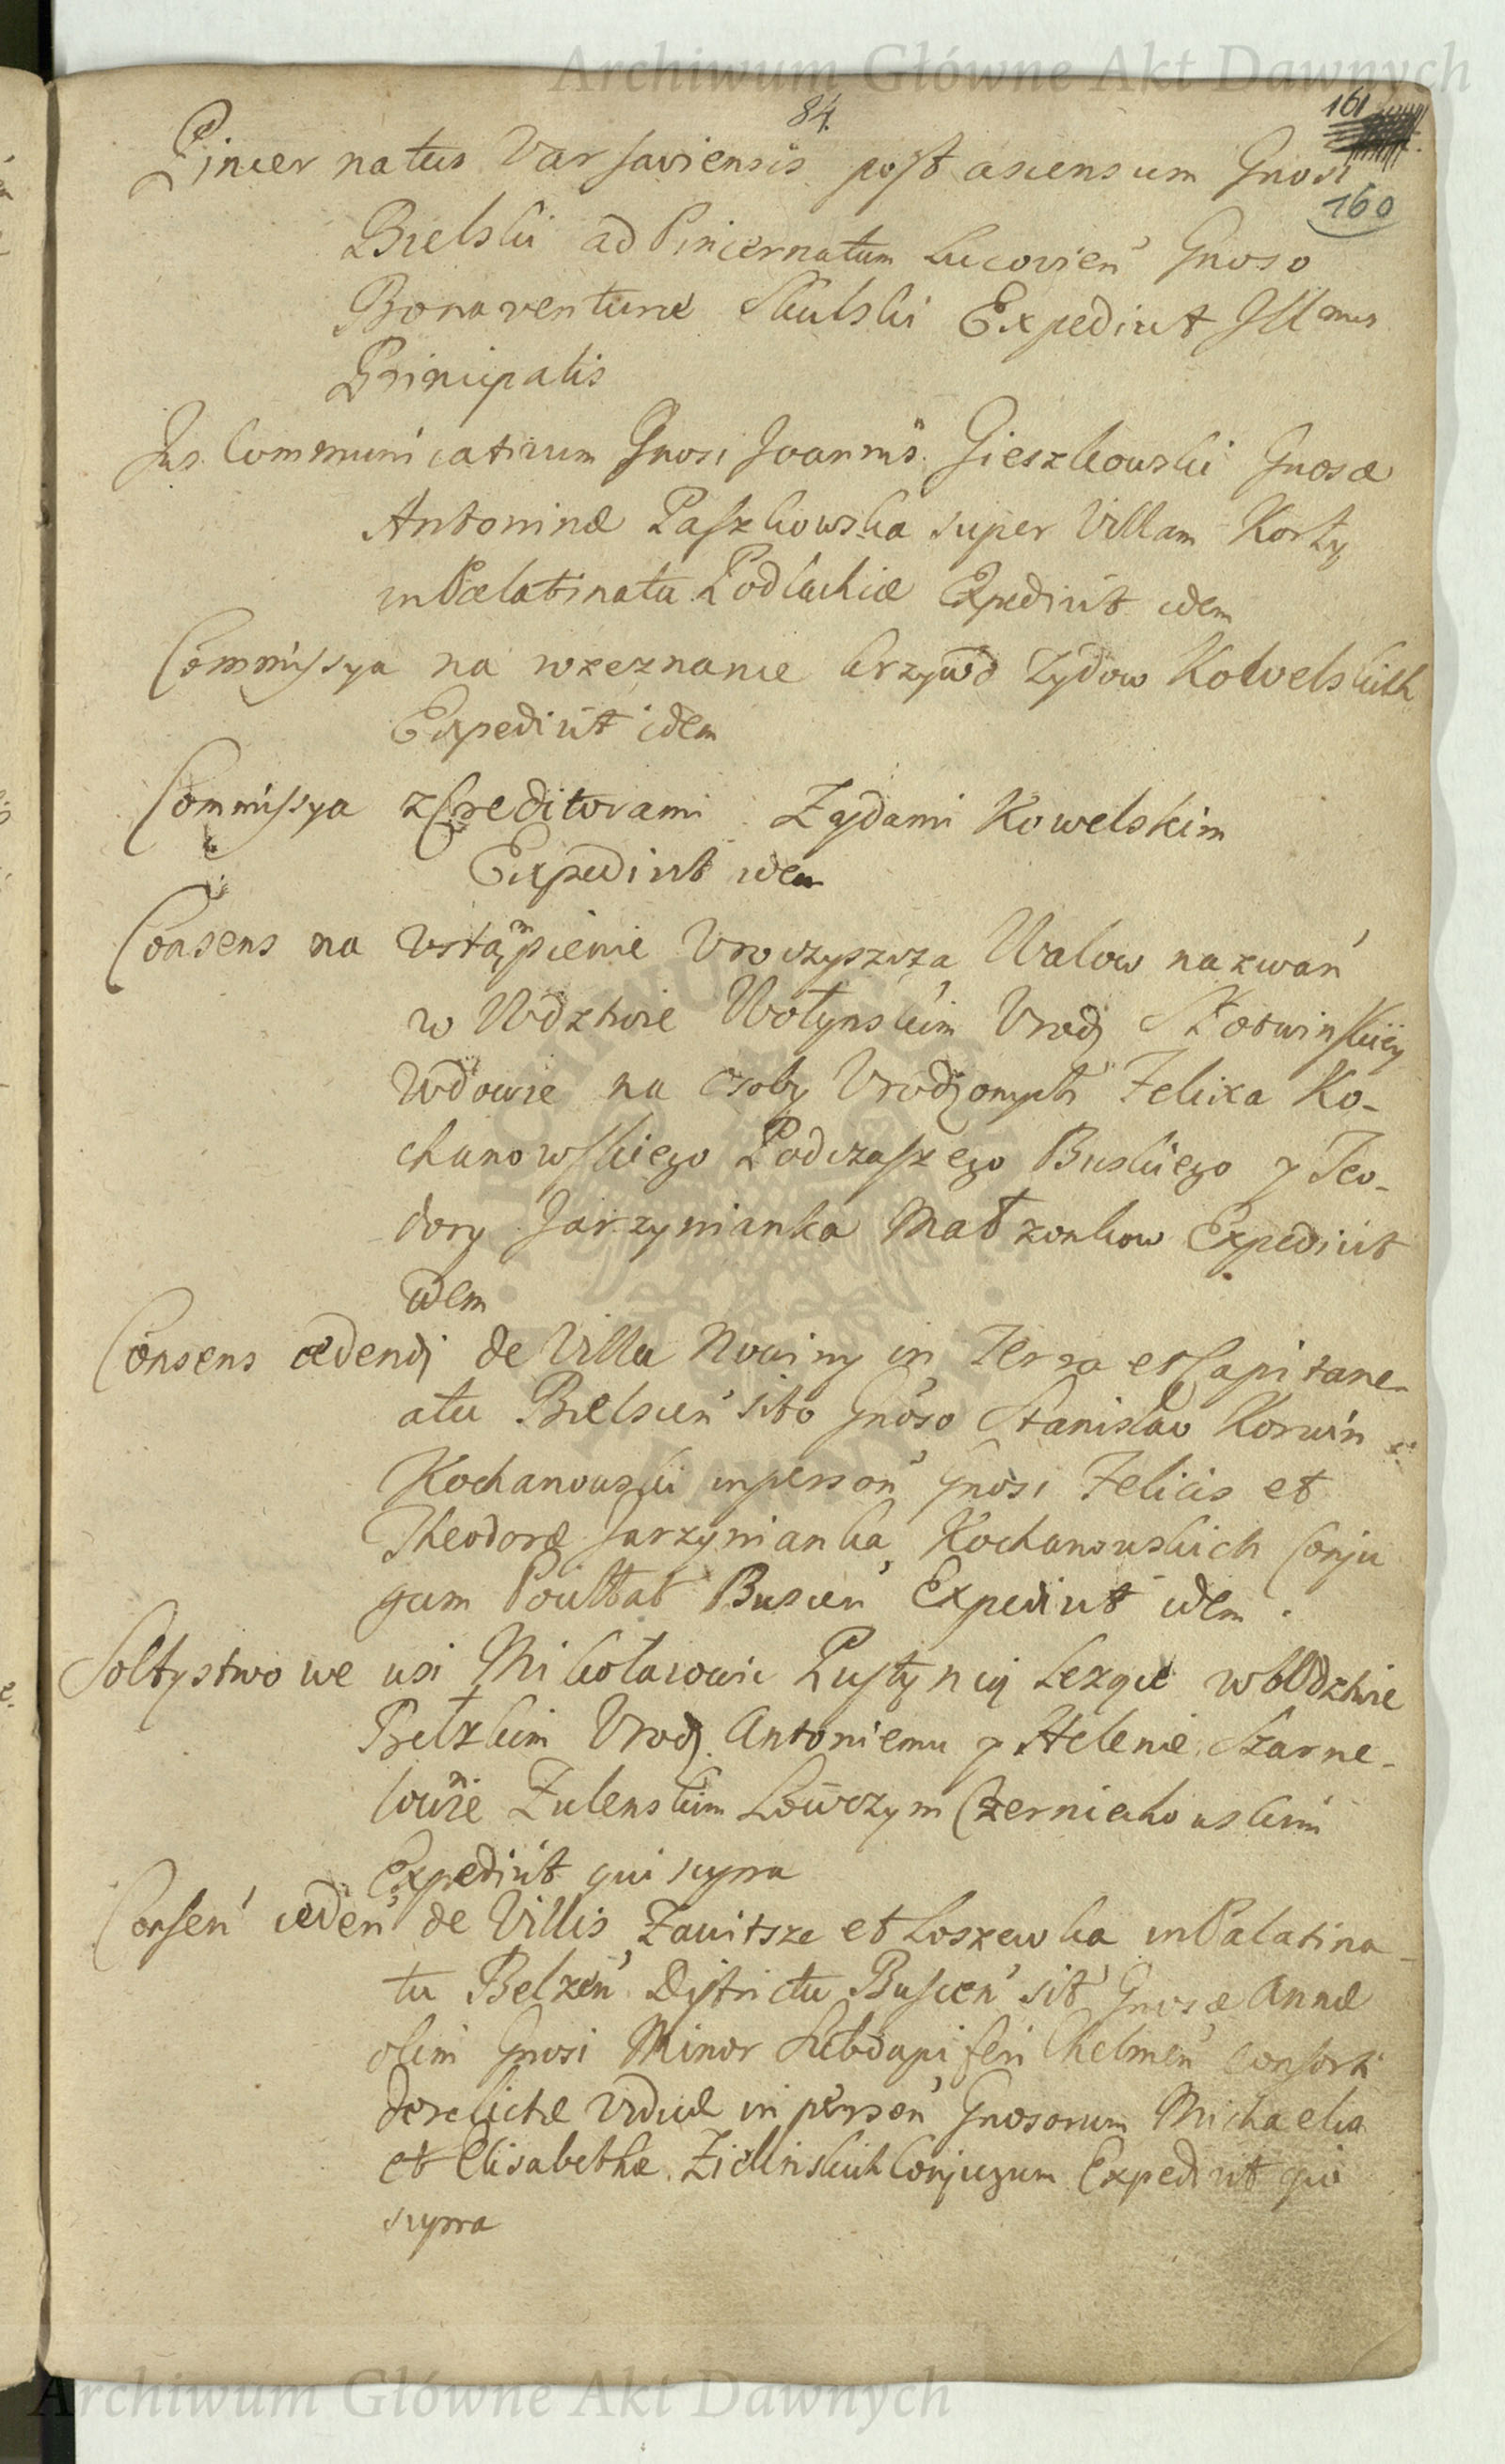 Archiwum Główne Akt Dawnych
84.
161
160
Pincernatus Varsaviensis post ascensum Gnosi
Bielski ad Pincernatum Lucovien Gnoso
Bonaventuræ Skulski Expedivit Illmus
Principalis
Jus Communicativum Gnosi Joannis Gieszkowski Gnosæ
Antoninæ Paszkowska super Villam Korty
in Palatinatu Podlachiæ Expedivit idem
Commissya na wzeznanie krzywd Zydow Kowelskich
Expedivit idem
Commissya z Creditorami Zydami Kowelskim
Expedivit idem
Consens na Vstąpienie Vroczyszcza Walow nazwan
w Wdztwie Wołynskim Vrodz Słotwinskiey
Wdowie na osoby Vrodzonych Felixa Ko-
chanowskiego Podczaszego Buskiego y Teo-
dory Jarzynianka Małzonkow Expedivit
idem
Consens cedendi de Villa Nowiny in Terra et Capitane-
atu Bielscen sito Gnoso Stanislao Korwin
Kochanowski in person Gnosi Felicis et
Theodoræ Jarzynianka Kochanowskich Conju
gum Pocilltat Buscen Expedivit idem.
Soltystwo we wsi Mikołaiowie Pustynią Lezące w Wdztwie
Bełzkim Vrodz. Antoniemu y Helenie Szarne-
Zulenskim Łowczym Czerniechowskim
Expedivit qui supra
Consen ceden de Villis Zawitsze et Loszewka in Palatina-
tu Belzen Districtu Buscen sit Gnosæ Annæ
olim Gnosi Minor Subdapiferi Chelmen consorti
derelictæ viduæ in person Gnosorum Michaelis
et Elisabethæ Zielinskich Conjugum Expedivit qui
supra
Archiwum Główne Akt Dawnych